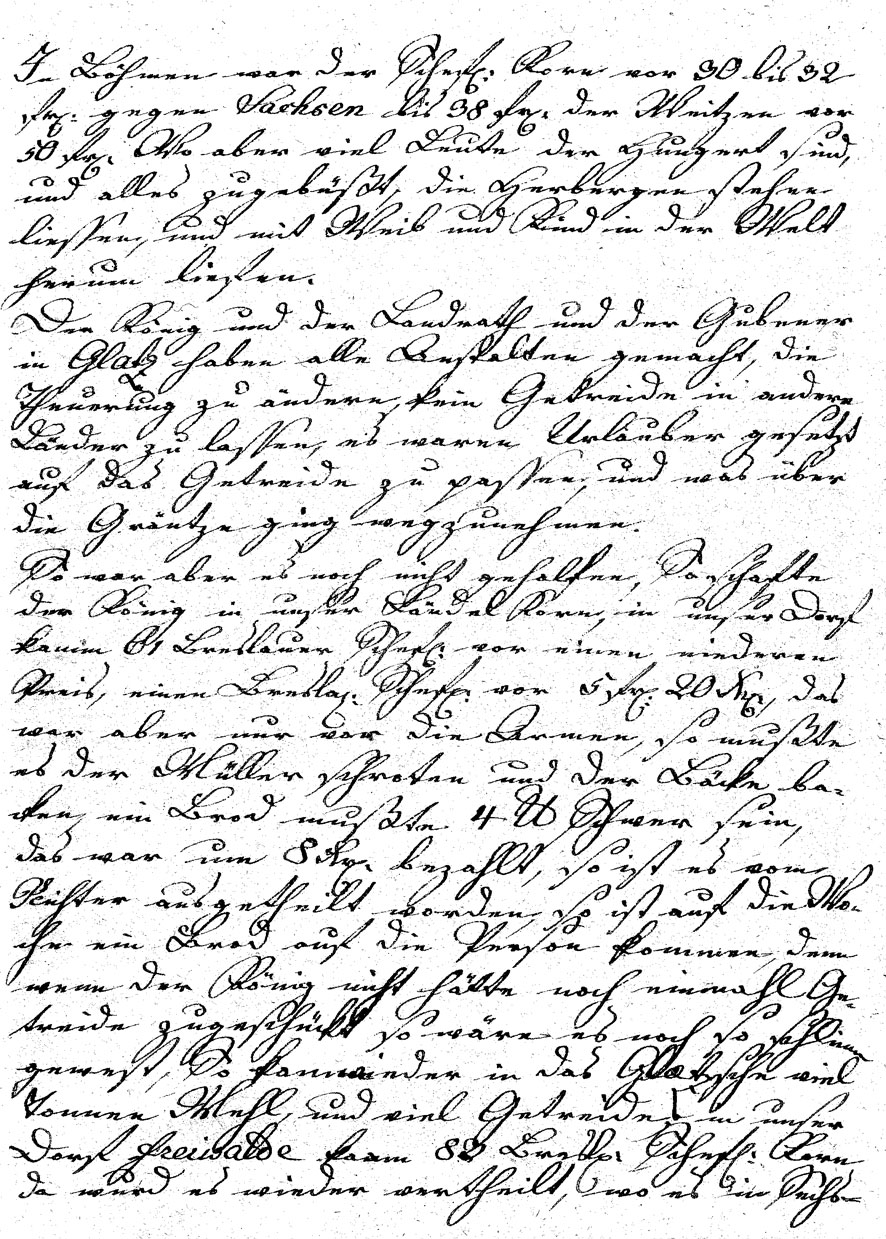 In Böhmen war der Schefl: Korn vor 30 bis 32
fr: gegen Sachsen bis 38 fr: der Weitzen vor
50 fr: Wo aber viel Leute der Hungert sind,
und alles zugebüßt, die Herbergen stehen
liessen, und mit Weib und Kind in der Welt
herum liefen.
Der König und der Landrath und der Gubener
in Glatz haben alle Anstalten gemacht, die
Theuerung zu ändern, kein Getreide in andere
Länder zu lassen, es waren Urlauber gesetzt
auf das Getreide zu passen, und was über
die Gräntze ging wegzunehmen.
So war aber es noch nicht geholfen, So schafte
der König in unser Ländel Korn, in unser Dorf
kamm 61 Breslauer Schefl: vor einen niederen
Preis, einen Bresla: Schefl: vor 5 fr: 20 Kr:, das
war aber nur vor die Armen, so mußte
es der Müller schroten und der Bäcke ba-
cken, ein Brod mußte 4 ℔ Schwer sein,
das war um 8 Kr: bezahlt, so ist es vom
Richter ausgetheilt worden, so ist auf die Wo-
che ein Brod auf die Person kommen, denn
wenn der König nicht hätte noch einmahl Ge-
treide zugeschückt so wäre es noch so schlimm
gewest, So kam wieder in das Glatzsche viel
Tonnen Mehl, und viel Getreide, in unser
Dorf freiwalde kaam 82 Bresl: Schefl: Korn
da wurd es wieder vertheilt, wo es in Sechs-